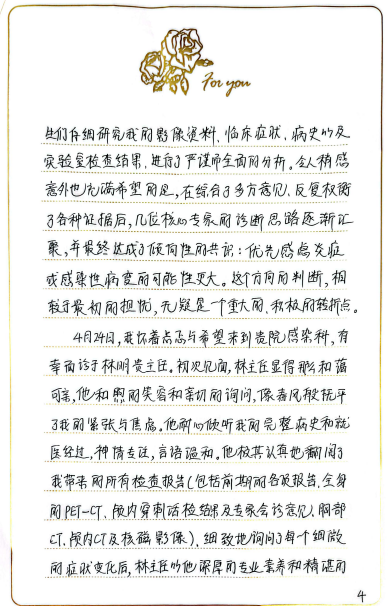 For you
生们仔细研究我的影像资料、临床症状、病史以及
实验室检查结果,进行了严谨而全面的分析。令人稍感
意外也充满希望的是,在综合了多方意见、反复权衡
了各种证据后,几位核心专家的诊断思路逐渐汇
聚,并最终达成了倾向性的共识:优先考虑炎症
或感染性病变的可能性更大。这个方向的判断,相
较于最初的担忧,无疑是一个重大的、积极的转折点。
4月24日,我怀着忐忑与希望来到贵院感染科,有
幸面诊于林明贵主任。初次见面,林主任显得那么和蔼
可亲,他和煦的笑容和亲切的询问,像春风般抚平
了我的紧张与焦虑。他耐心倾听我的完整病史和就
医经过,神情专注,言语温和。他极其认真地翻阅了
我带来的所有检查报告(包括前期的各项报告、全身
的PET-CT、颅内穿刺活检结果及专家会诊意见、胸部
CT、颅内CT及核磁影像)、细致地询问了每个细微
的症状变化后,林主任以他深厚的专业素养和精湛的
4